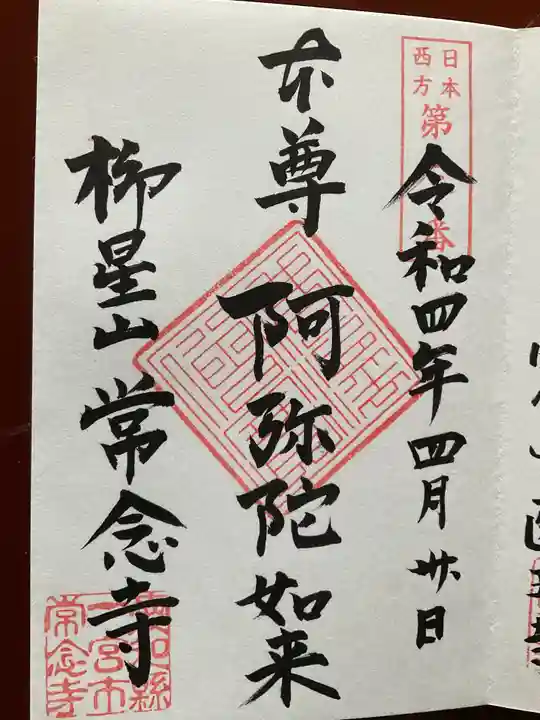 日本
西方
第
番
令和四年四月卅日
本尊
阿弥陀如来
柳星山常念寺
愛知縣
一宮市
常念寺